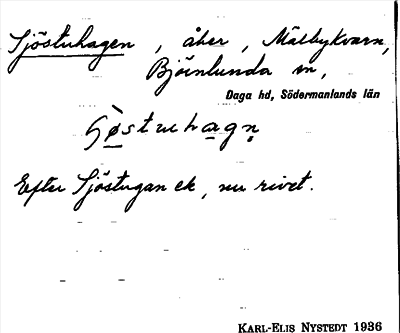 Sjöstuhagen , åker, Mälbykvarn,
Björnlunda sn,
Daga hd, Södermanlands län
Efter Sjöstugan ek, nu rivet.
KARL-ELIS NYSTEDT 1936